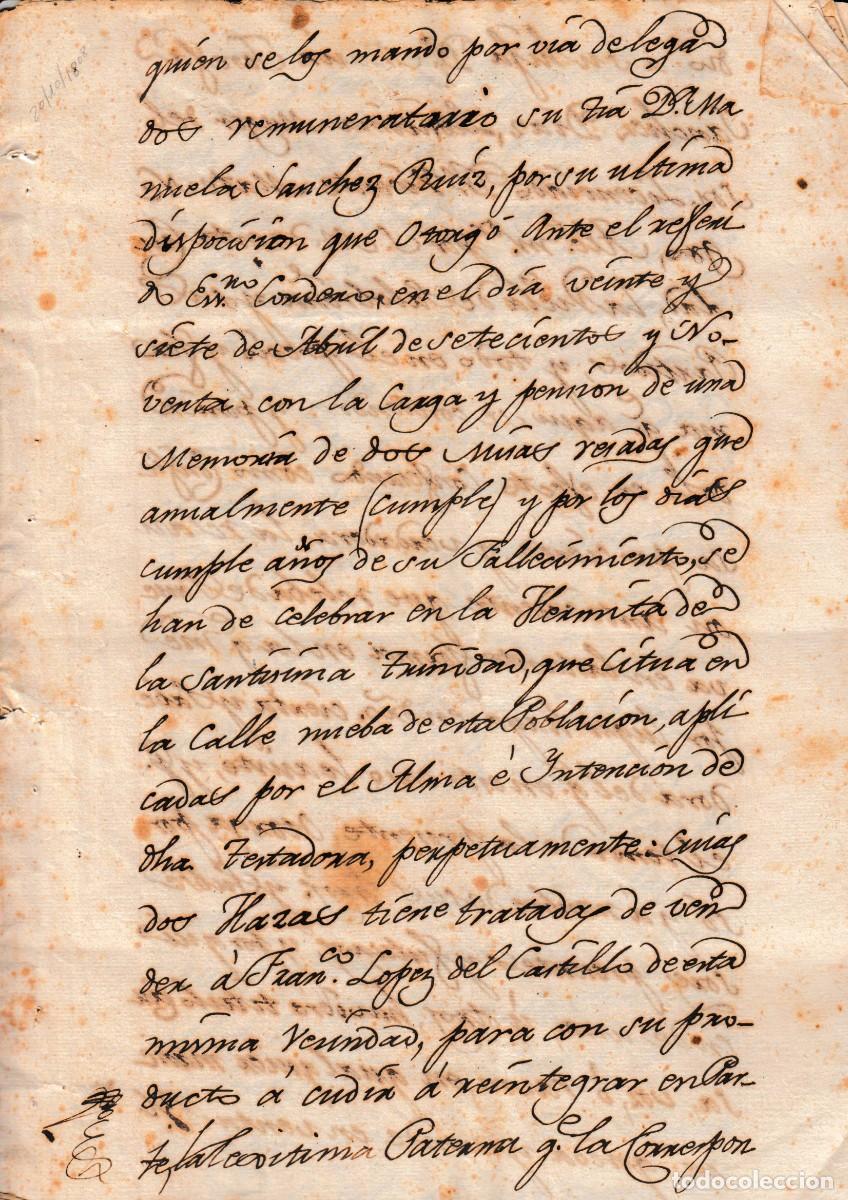 20/10/1808
quien se los mando por via de lega
dos remuneratorio su tia D.ª Ma
nuela Sanchez Ruiz, por su ultima
dispocision que Otorgó Ante el referi
do Ess.no Cordero, en el dia veinte y
siete de Abril de setecientos y No-
venta con la Carga y pension de una
Memoria de dos Misas resadas que
anualmente (cumple) y por los dias
cumple años de su Fallecimiento, se
han de celebrar en la Hermita de
la Santisima Trinidad, que Citua en
la Calle nueba de esta Poblacion, apli
cadas por el Alma è Yntencion de
dha Testadora, perpetuamente: Cuias
dos Hazas tiene tratadas de ven
der à Fran.co Lopez del Castillo de esta
misma Vecindad, para con su pro-
ducto á cudir á reintegrar en Par-
te, la lexitima Paterna q.e la Correspon
todocoleccion